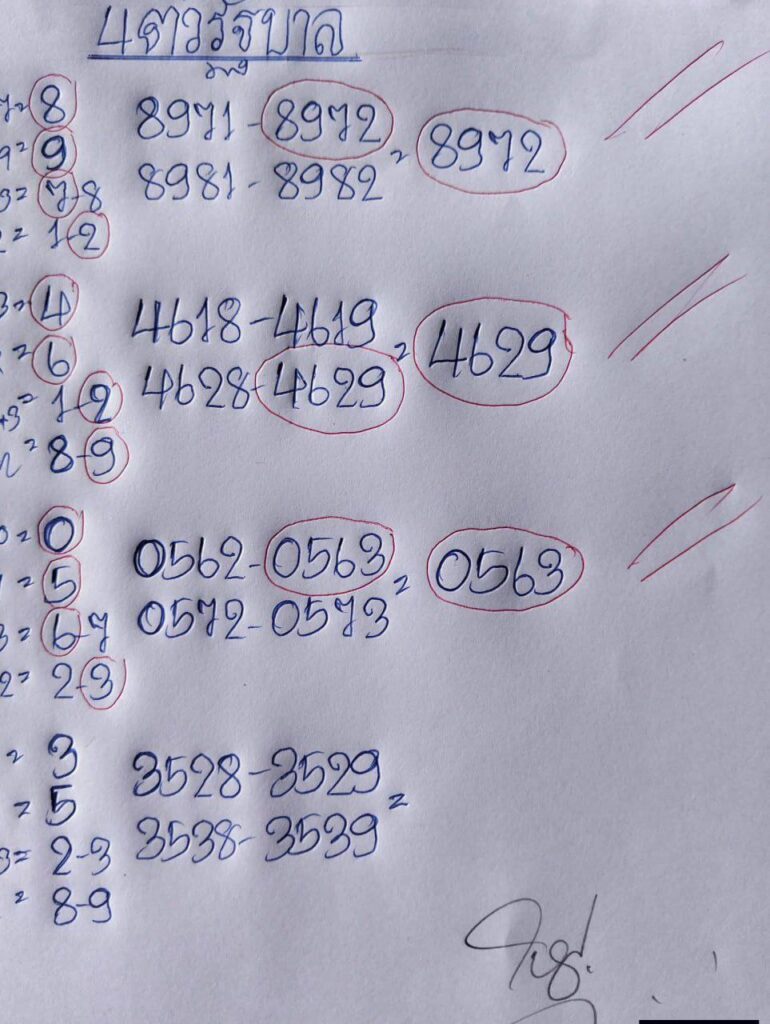 4ตัวรัฐบาล
ตรง
7=8 8971-8972 = 8972
9=9 8981-8982
3=7-8
2=1-2
3=4 4618-4619 = 4629
=6 4628-4629
+3=1-2
=8-9
0=0 0562-0563 = 0563
1=5 0572-0573
3=6-7
2=2-3
=3 3528-3529 =
=5 3538-3539
3=2-3
=8-9